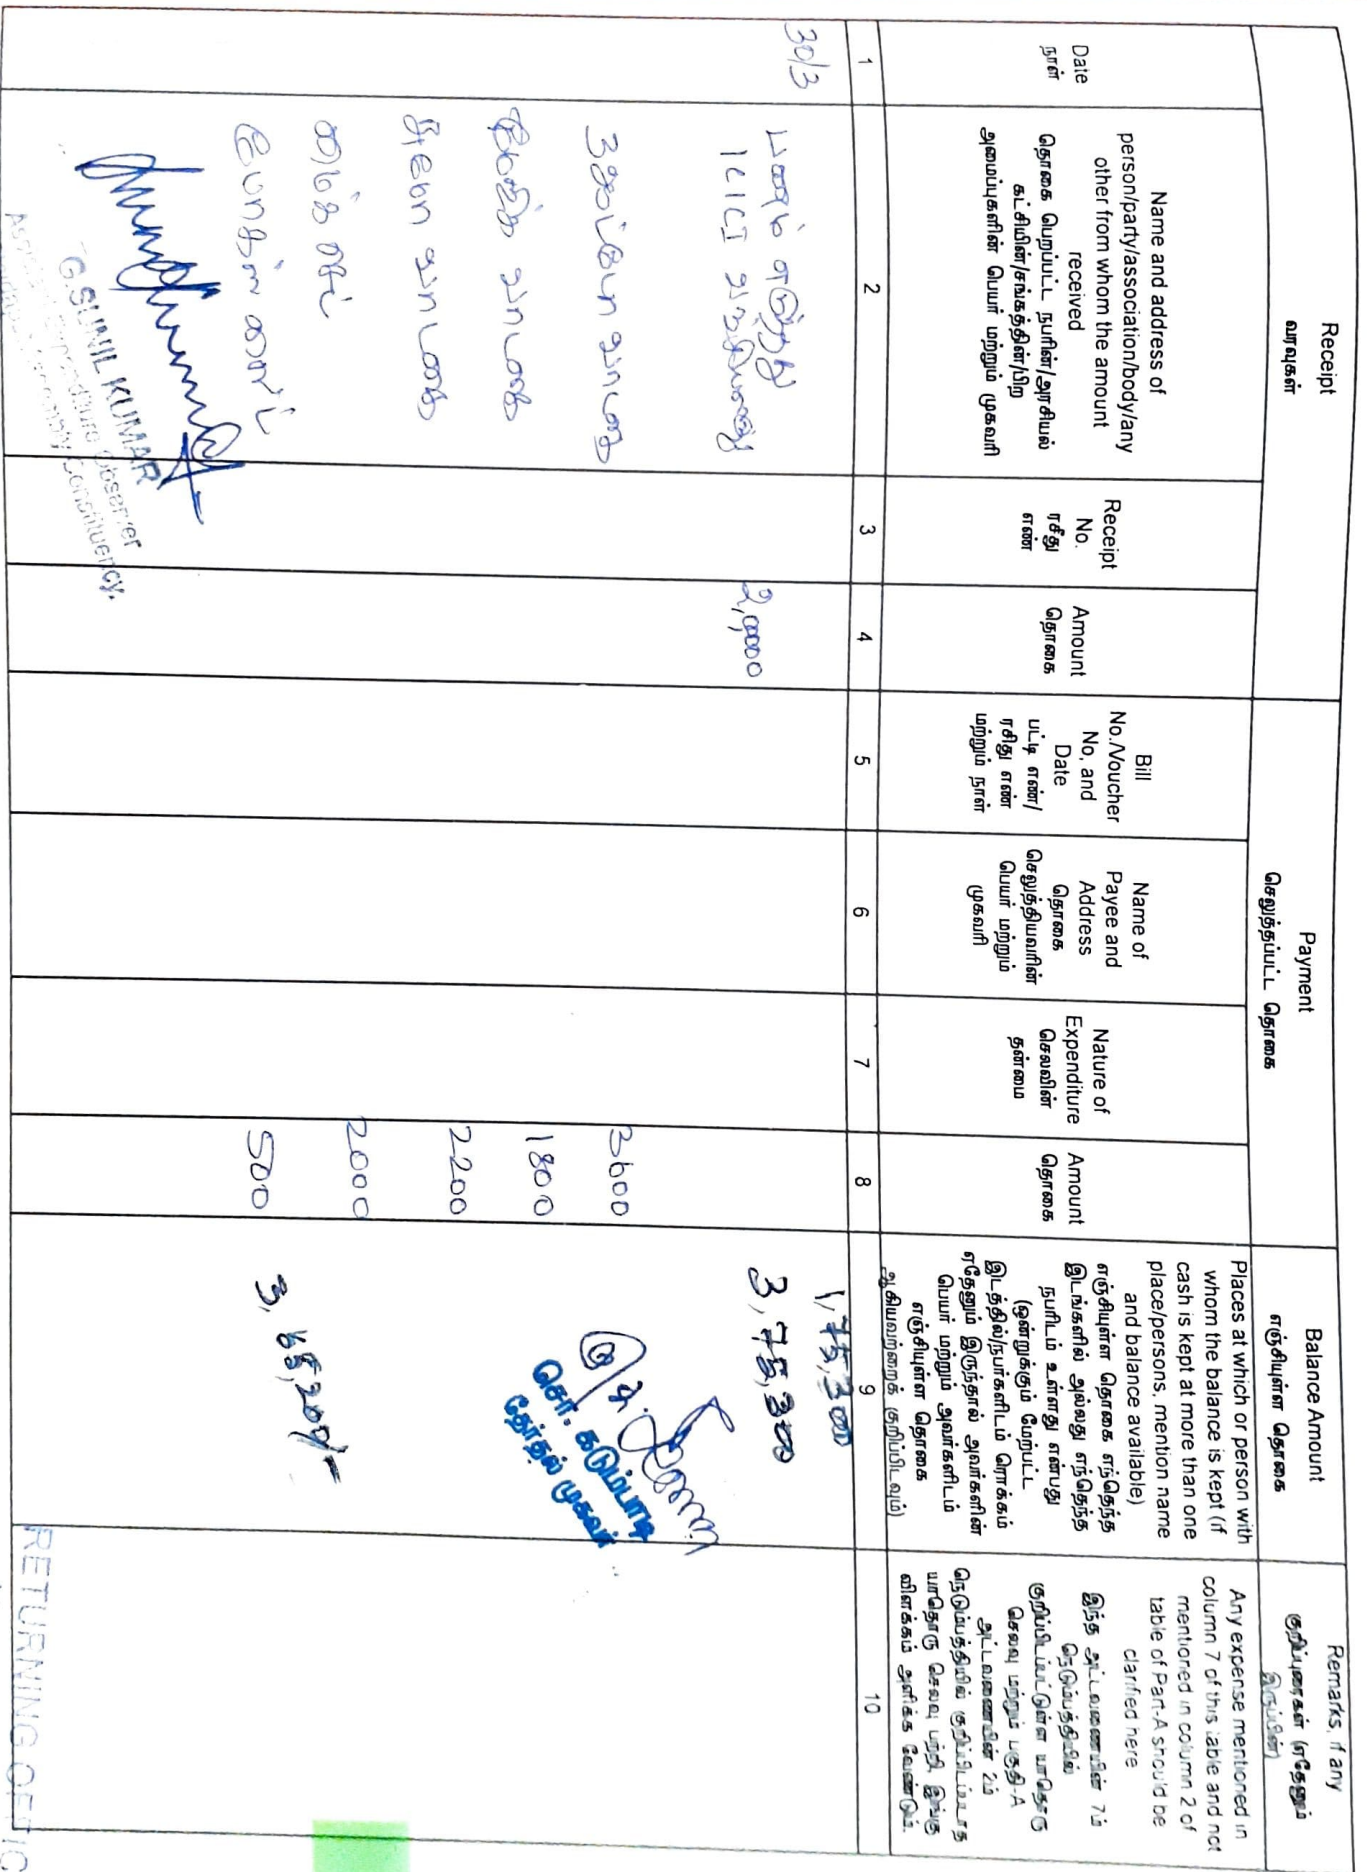 Receipt
வரவுகள்
Payment
செலுத்தப்பட்ட தொகை
Balance Amount
எஞ்சியுள்ள தொகை
Remarks, if any
குறிப்புரைகள் (ஏதேனும்
இருப்பின்)
Date
நாள்
Name and address of
person/party/association/body/any
other from whom the amount
received
தொகை பெறப்பட்ட நபரின்/அரசியல்
கட்சியின்/சங்கத்தின்/பிற
அமைப்புகளின் பெயர் மற்றும் முகவரி
Receipt
No.
ரசீது
எண்
Amount
தொகை
Bill
No./Voucher
No, and
Date
பட்டி எண்/
ரசிது எண்
மற்றும் நாள்
Name of
Payee and
Address
தொகை
செலுத்தியவரின்
பெயர் மற்றும்
முகவரி
Nature of
Expenditure
செலவின்
தன்மை
Amount
தொகை
Places at which or person with
whom the balance is kept (if
cash is kept at more than one
place/persons, mention name
and balance available)
எஞ்சியுள்ள தொகை எந்தெந்த
இடங்களில் அல்லது எந்தெந்த
நபரிடம் உள்ளது என்பது
(ஒன்றுக்கும் மேற்பட்ட
இடத்தில்/நபர்களிடம் ரொக்கம்
ஏதேனும் இருந்தால் அவர்களின்
பெயர் மற்றும் அவர்களிடம்
எஞ்சியுள்ள தொகை
ஆகியவற்றைக் குறிப்பிடவும்)
Any expense mentioned in
column 7 of this table and not
mentioned in column 2 of
table of Part-A should be
clarified here
இந்த அட்டவணையின் 7ம்
நெடும்பத்தியில்
குறிப்பிடப்பட்டுள்ள யாதொரு
செலவு மற்றும் பகுதி-A
அட்டவணையின் 2ம்
நெடும்பத்தியில் குறிப்பிடப்படாத
யாதொரு செலவு பற்றி இங்கு
விளக்கம் அளிக்க வேண்டும்.
1 2 3 4 5 6 7 8 9 10
30/3
பணம் எடுத்தது
1,75,300
ICICI
2,00000
3,75,300
3ஆட்டோ வாடகை
3600
வாடகை
1800
வாடகை
2200
2000
500
3,65,200/-
சொ. கடும்பாடி
தேர்தல் முகவர்
G.SUNIL KUMAR
Expenditure Observer
Assembly Constituency.
RETURNING OFFIC